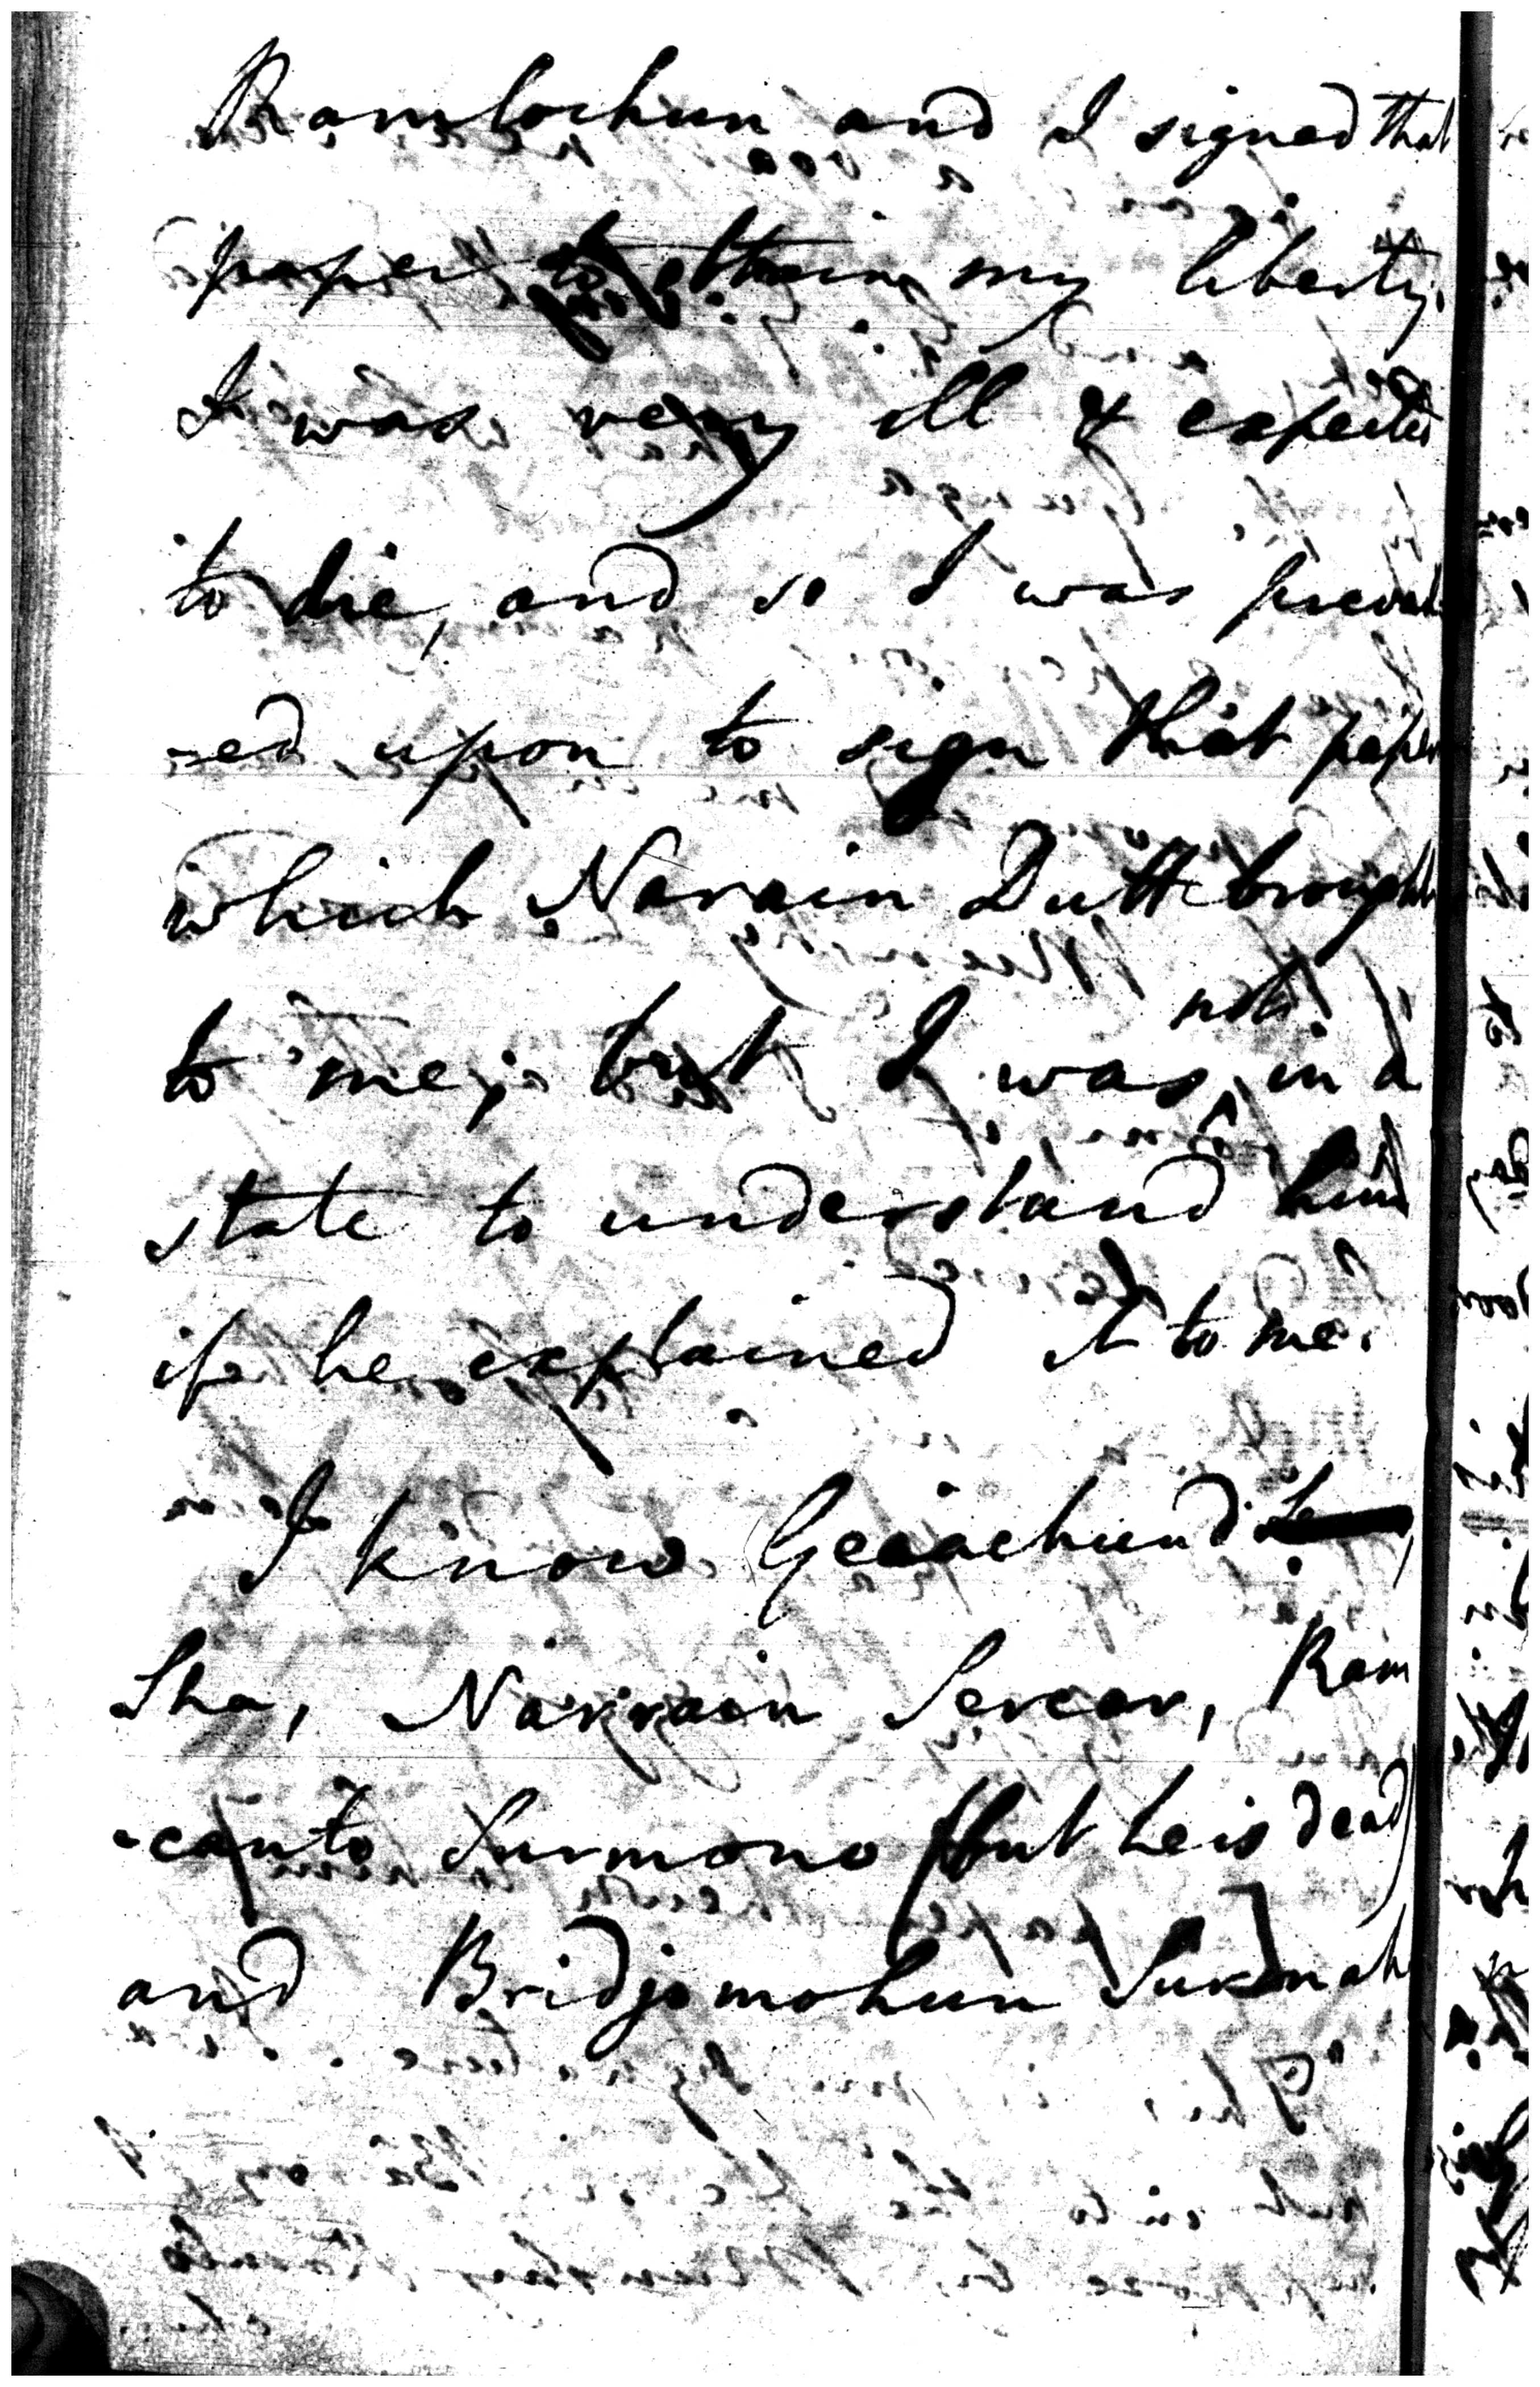 Ramlochun and I signed that
paper to obtain my liberty.
I was very ill & expected
to die, and so I was prevail
-ed upon to sign that paper
which Narain Dutt brought
to me; but I was not in a
state to understand him
if he explained it to me.
I know
Sha, Narrain Sercar, Ram
-canto Surmono (but he is dead)
and Bridjomohun